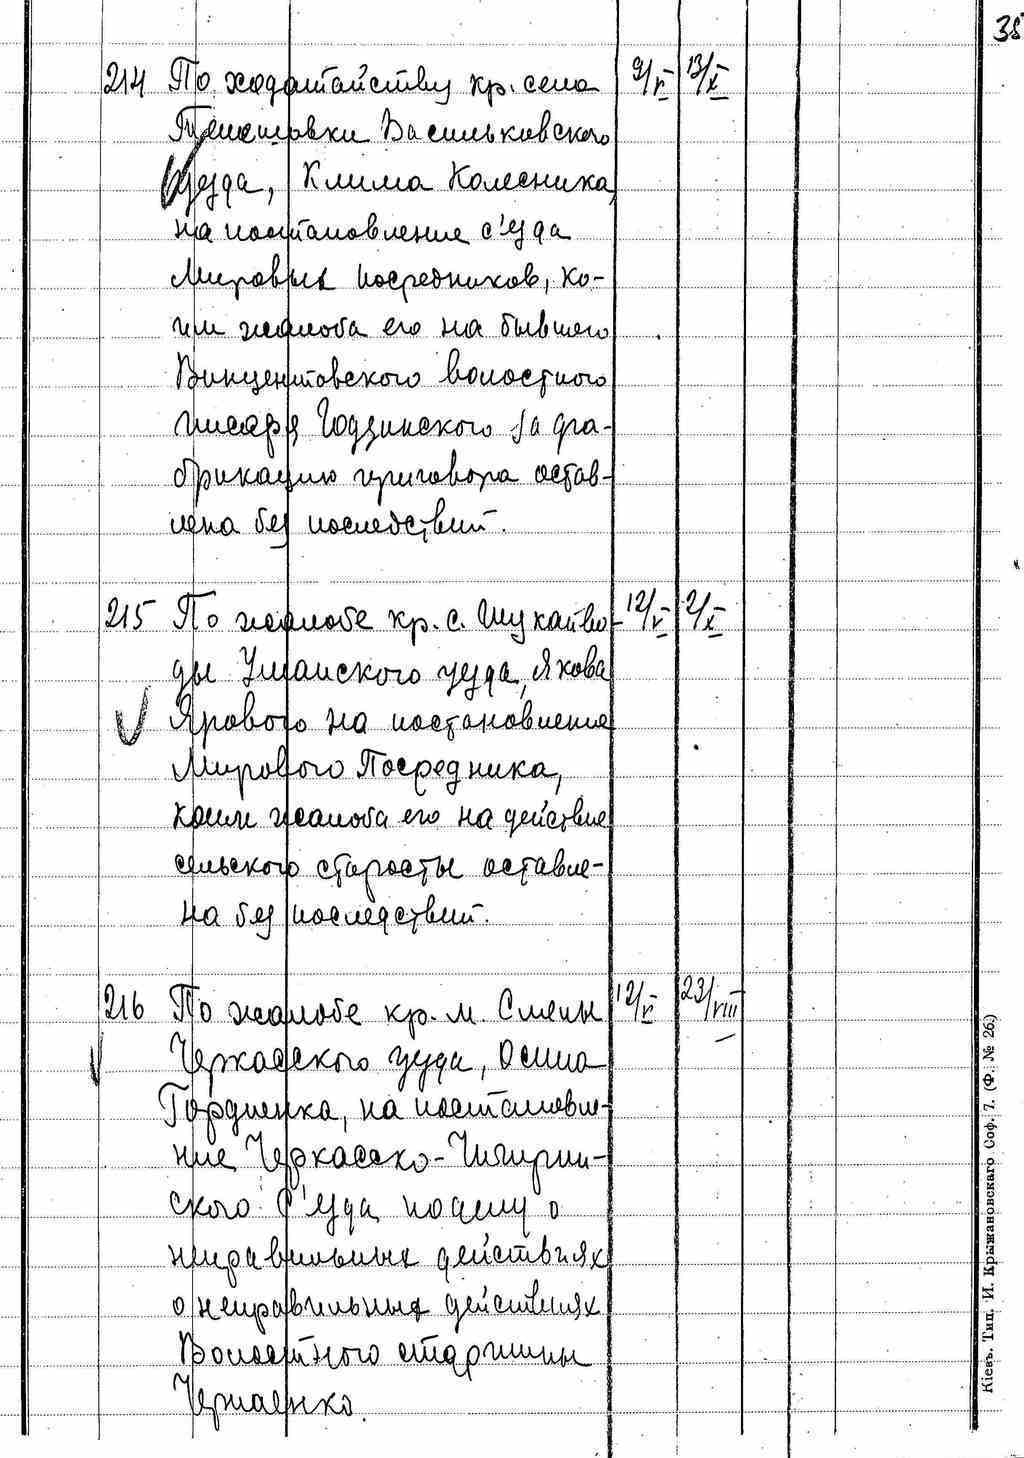 38
214 По ходатайству кр. села 9/V 13/X
Телешовки Васильковского
уезда, Клима Колесника
на постановление с'езда
Мировых посредников, ко-
им жалоба его на бывшего
Винцентовского волостного
писаря Годзинского за фа-
брикацию приговора остав-
лена без последствий.
215 По жалобе кр. с. Шукайво- 12/V 2/X
ды Уманского уезда, Якова
Ярового на постановление
Мирового Посредника,
коим жалоба его на действие
сельского старосты оставле-
на без последствий.
216 По жалобе кр. м. Смелы 12/V 23/VIII
Черкасского уезда, Осипа
Гордиенка, на постановле-
ние Черкасско-Чигирин-
ского С'езда по делу о
неправильных действиях
о неправильных действиях
Волостного старшины
Кіевъ. Тип. И. Крыжановскаго Соф. 7. (Ф. № 26.)